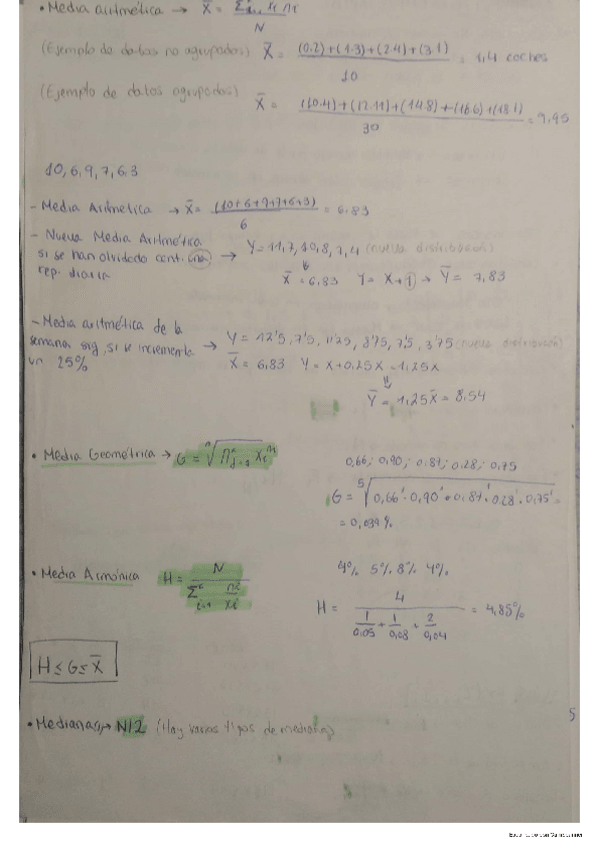 • Media aritmética → X̄ = Σ xi ni / N
(Ejemplo de datos no agrupados) X̄ = (0.2)+(1.3)+(2.4)+(3.1) / 10 = 1,4 coches
(Ejemplo de datos agrupados) X̄ = ((0.4)+(12.11)+(14.8)+(16.6)+(18.1) / 30 = 9,95
10, 6, 9, 7, 6, 3
- Media Aritmética → X̄ = (10+6+9+7+6+3) / 6 = 6.83
- Nueva Media Aritmética
si se han olvidado cont. una → Y = 11, 7, 10, 8, 7, 4 (nueva distribución)
rep. diaria X̄ = 6,83 Y = X+1 → Ȳ = 7,83
- Media aritmética de la
semana sig, si se incrementa → Y = 12'5, 7'5, 11'25, 8'75, 7'5, 3'75 (nueva distribución)
un 25% X̄ = 6,83 Y = X+0,25X = 1,25X
Ȳ = 1,25X̄ = 8,54
• Media Geométrica → G =
0,66; 0,90; 0,87; 0,28; 0,75
G = ⁵√0,66¹ · 0,90¹ · 0,87¹ · 0.28¹ · 0,75¹ =
= 0,039%
• Media Armónica H = N / Σ ni/xi
4% 5% 8% 4%
H = 4 / 1/0.05 + 1/0,08 + 2/0,04 = 4,85%
H ≤ G ≤ X̄
• Mediana → N/2 (Hay varios tipos de mediana)
5